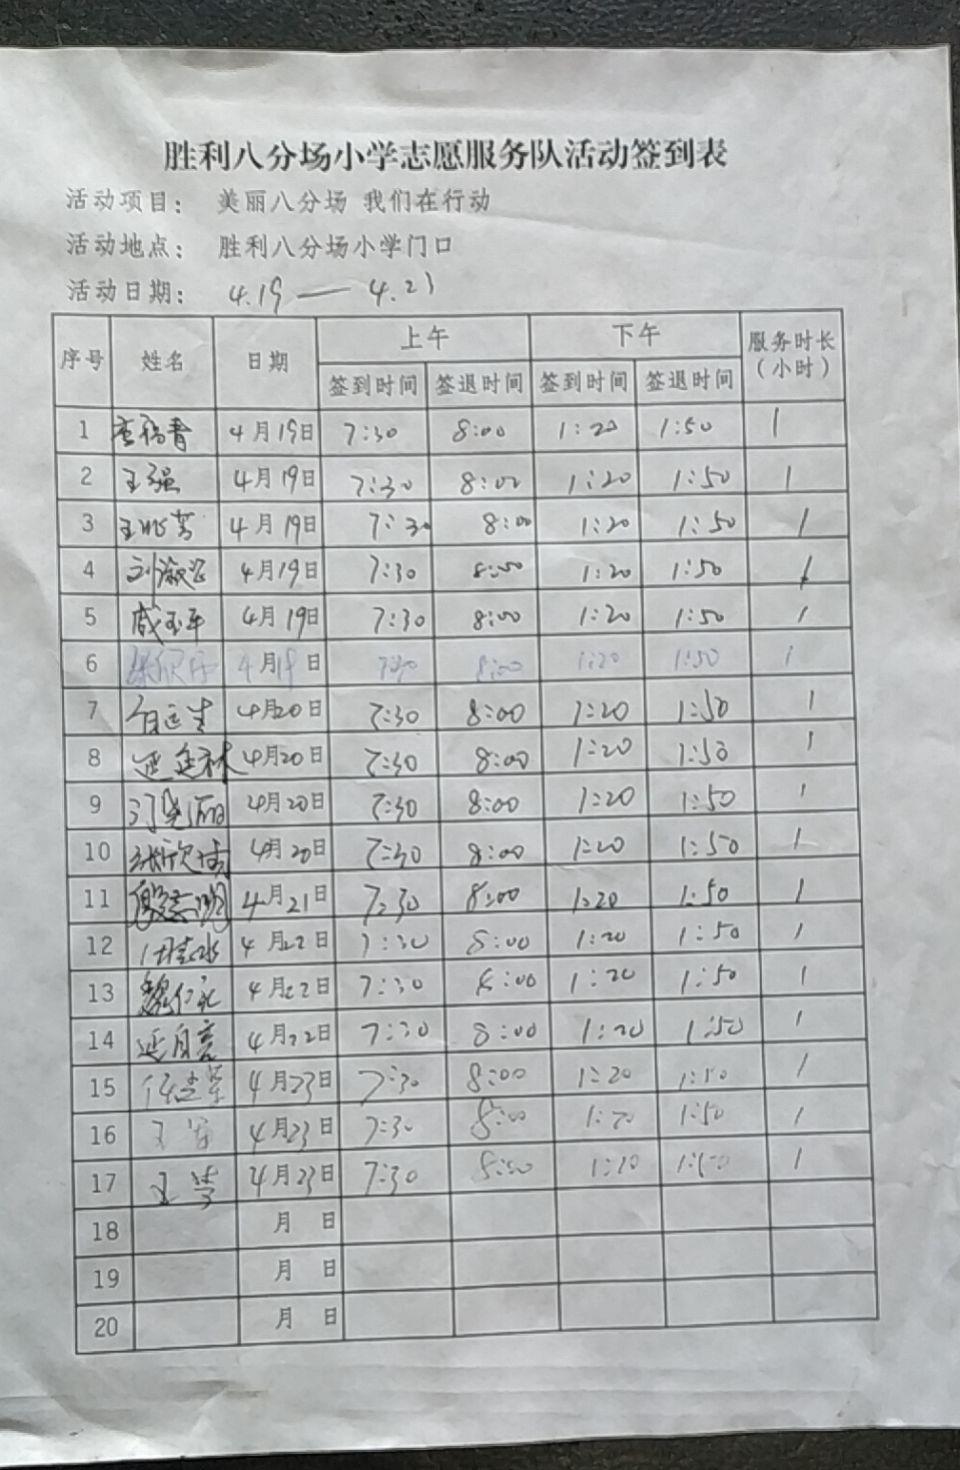 胜利八分场小学志愿服务队活动签到表
活动项目： 美丽八分场 我们在行动
活动地点： 胜利八分场小学门口
活动日期： 4.19 — 4.23
序号 姓名 日期 上午 下午 服务时长（小时）
签到时间 签退时间 签到时间 签退时间
1 4月19日 7:30 8:00 1:20 1:50 1
2 王强 4月19日 7:30 8:00 1:20 1:50 1
3 4月19日 7:30 8:00 1:20 1:50 1
4 4月19日 7:30 8:00 1:20 1:50 1
5 4月19日 7:30 8:00 1:20 1:50 1
6 4月19日 7:30 8:00 1:20 1:50 1
7 4月20日 7:30 8:00 1:20 1:50 1
8 4月20日 7:30 8:00 1:20 1:50 1
9 4月20日 7:30 8:00 1:20 1:50 1
10 4月20日 7:30 8:00 1:20 1:50 1
11 4月21日 7:30 8:00 1:20 1:50 1
12 4月22日 7:30 8:00 1:20 1:50 1
13 魏仁永 4月22日 7:30 8:00 1:20 1:50 1
14 4月22日 7:30 8:00 1:20 1:50 1
15 4月23日 7:30 8:00 1:20 1:50 1
16 4月23日 7:30 8:00 1:20 1:50 1
17 4月23日 7:30 8:00 1:20 1:50 1
18 月 日
19 月 日
20 月 日